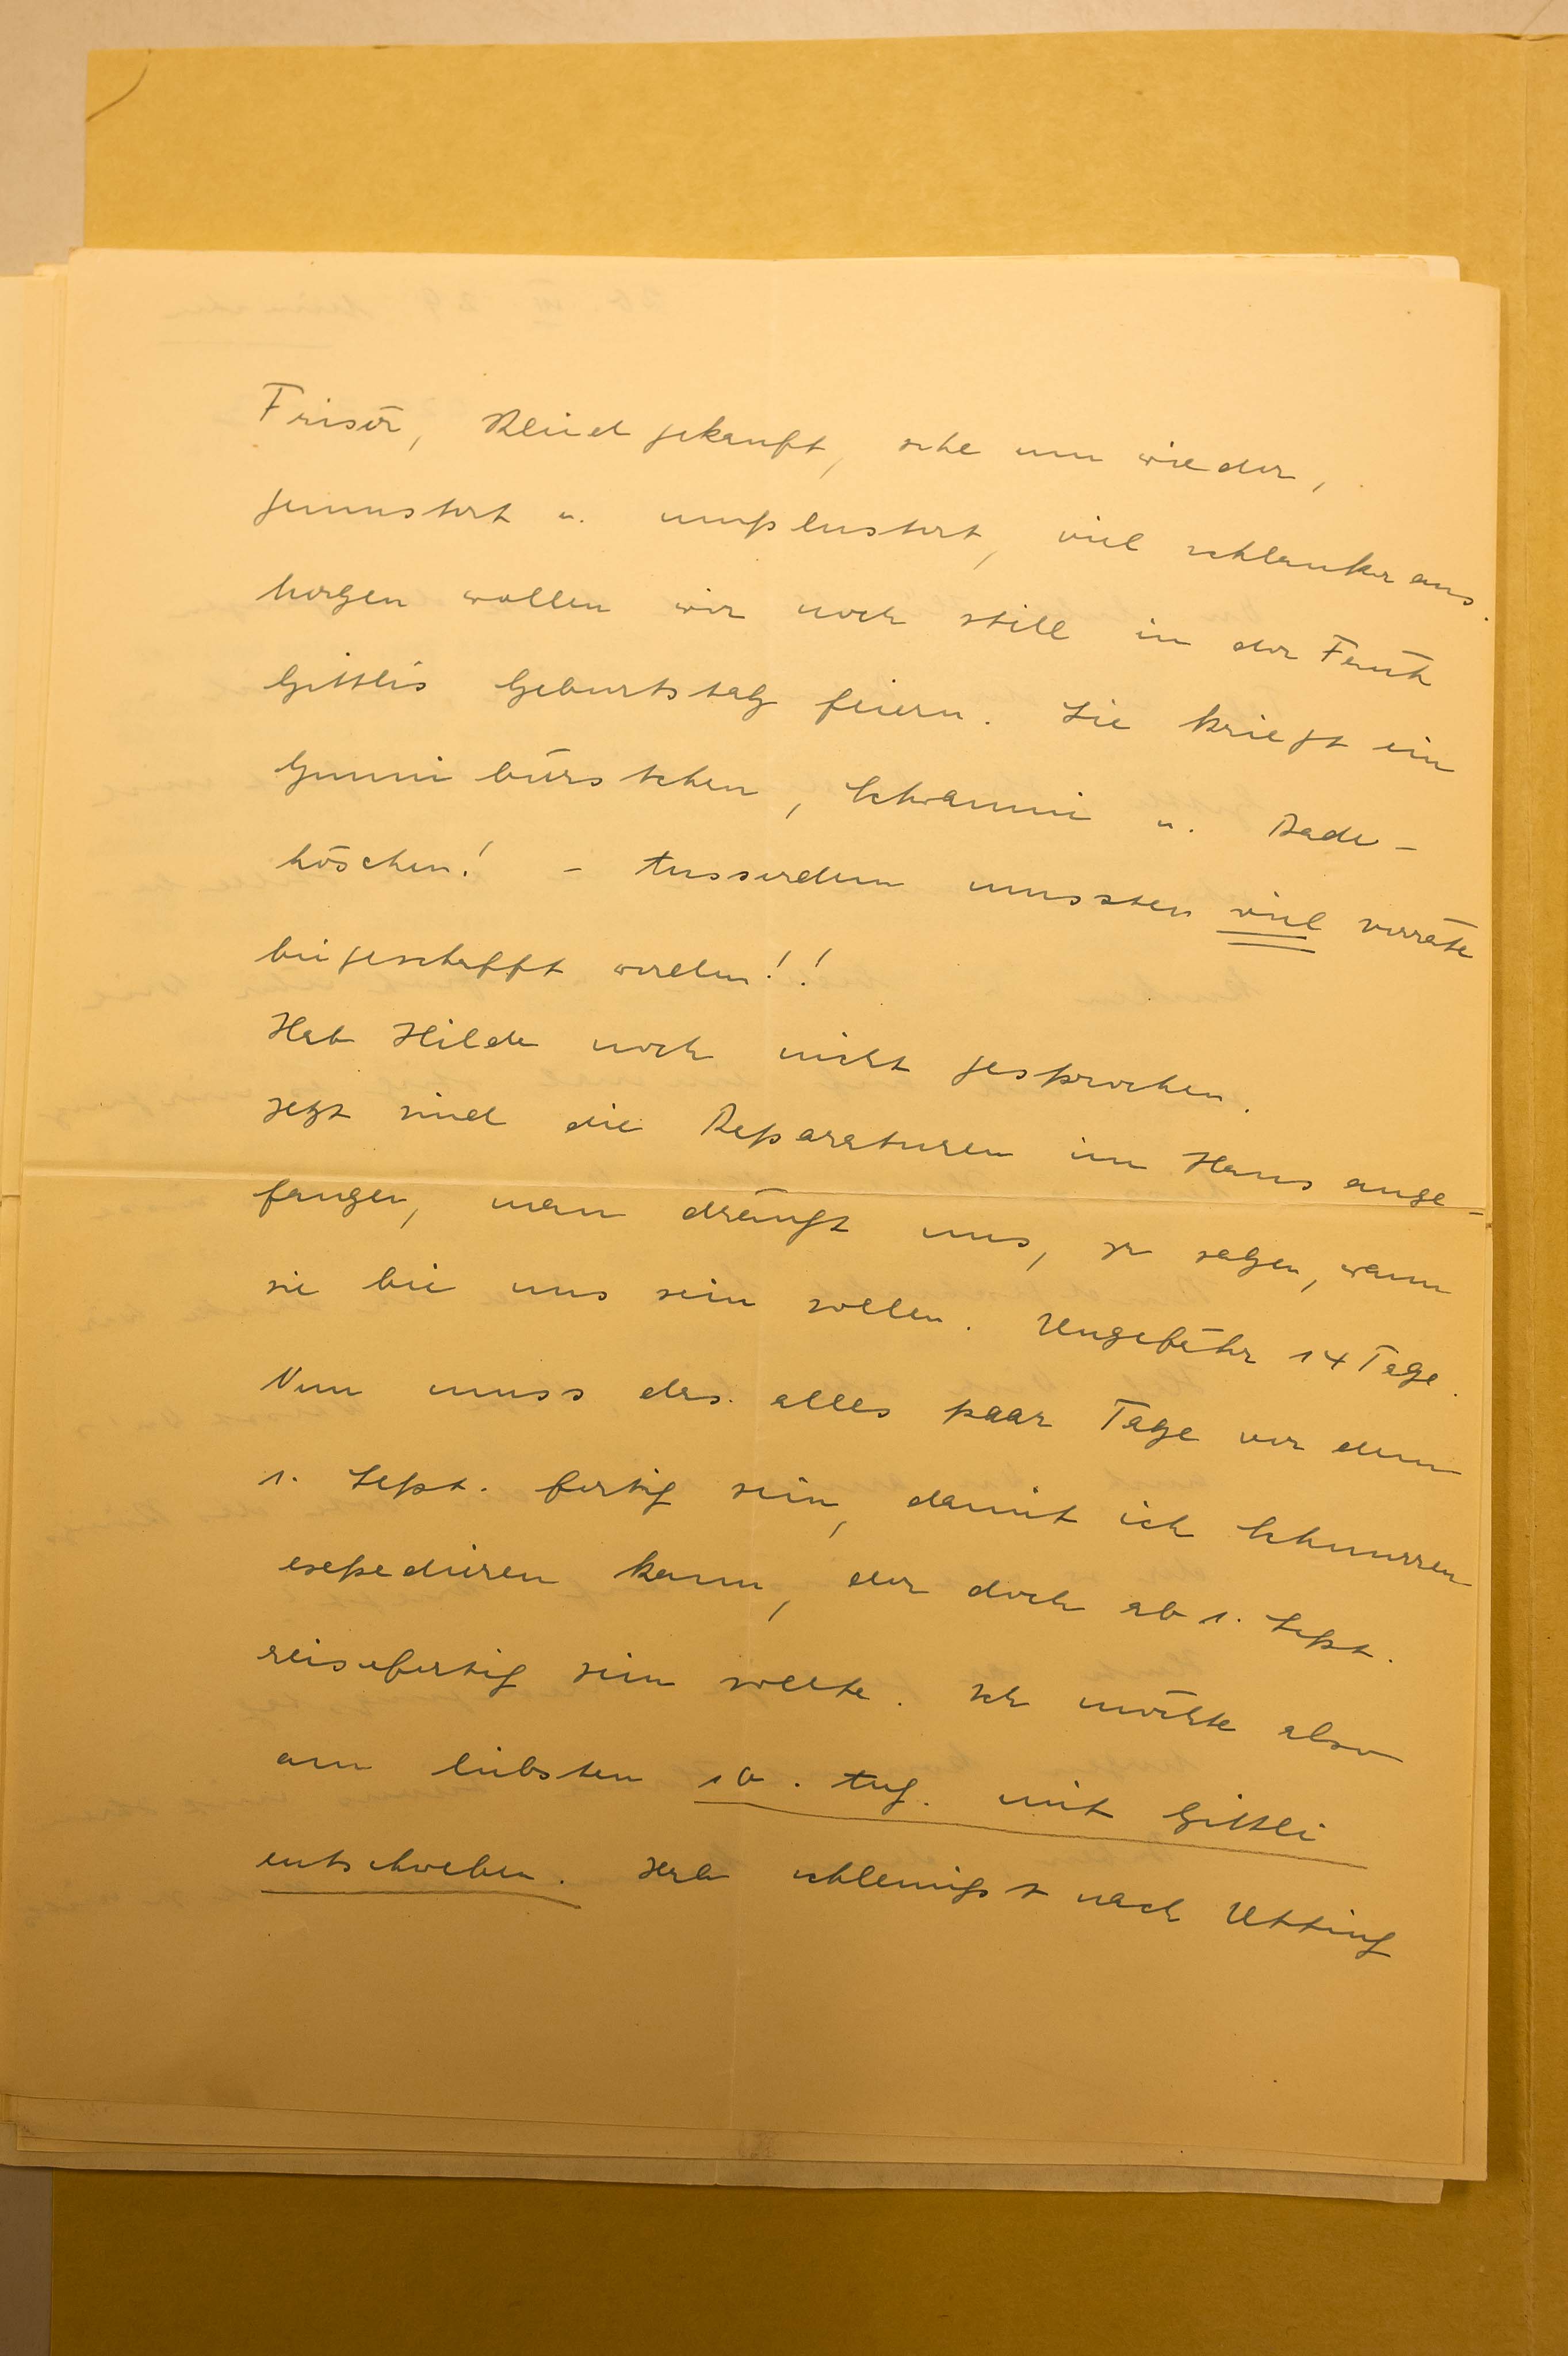 Frisör, Kleid gekauft, sehe nun wieder,
gemustert u. umplustert, viel schlanker aus.
Morgen wollen wir noch still in der Früh
Gittlis Geburtstag feiern. Sie kriegt ein
Gummi bürstchen, Schwammi u. Bade-
höschen! – Ausserdem mussten viel vorräte
beigeschafft werden!!
Hab Hilde noch nicht gesprochen.
Jetzt sind die Reparaturen im Haus ange-
fangen, man drängt uns, zu sagen, wann
sie bei uns sein sollen. Ungefähr 14 Tage.
Nun muss das alles paar Tage vor dem
1. Sept. fertig sein, damit ich Schnurren
expedieren kann, der doch ab 1. Sept.
reisefertig sein sollte. Ich möchte also
am liebsten 10. Aug. mit Gittli
entschweben. Hab schleunigst nach Utting